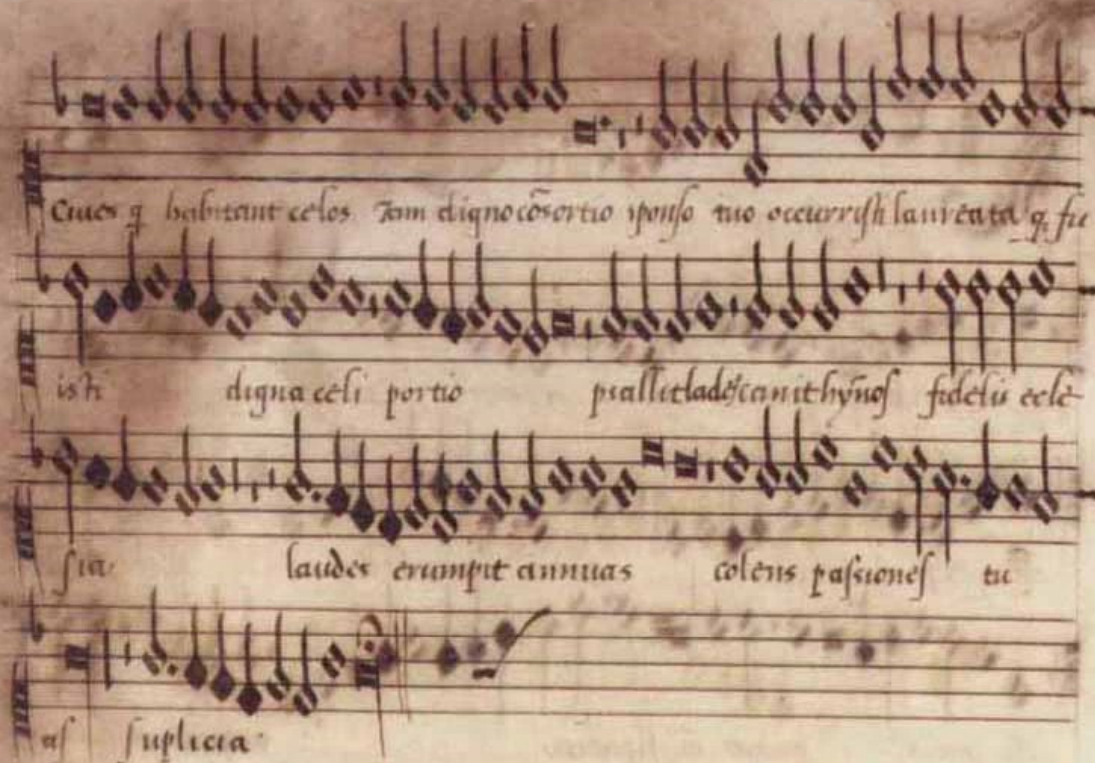 Ciues q̃ habitant celos Jam digno cõsortio sponso tuo occurristi laureata q̨ fu
isti digna celi portio psallit lades canit hỹnos fidelis eclẽ
sia laudes erumpit annuas colens passiones tu
as suplicia